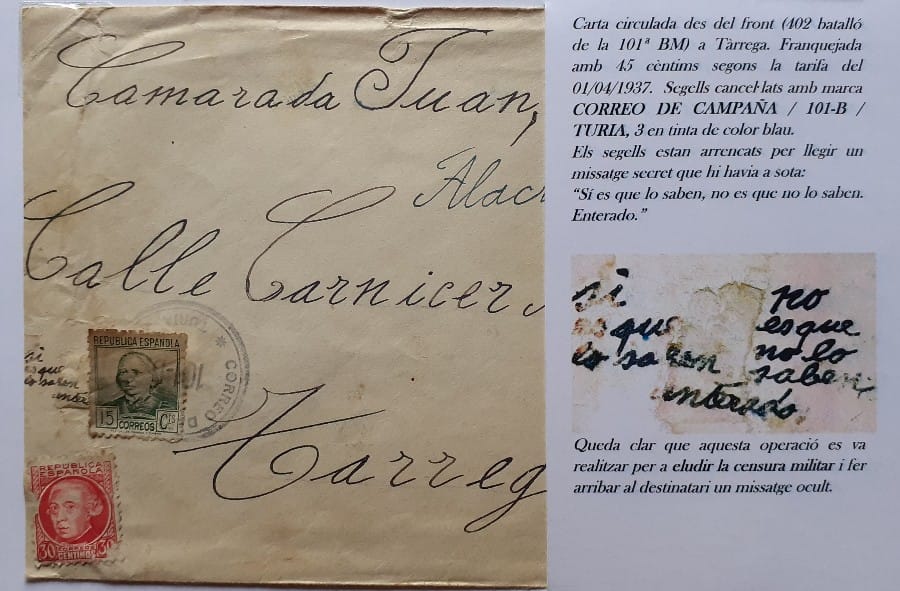 Camarada Juan,
Alac
Calle Carnicer
Tarreg
REPUBLICA ESPAÑOLA
15 CORREOS Cts
CORREO DE
TURIA
101-B
si
es que
lo saben
entera
REPUBLICA
ESPAÑOLA
CORREOS
30 CENTIMOS 30
Carta circulada des del front (402 batalló
de la 101ª BM) a Tàrrega. Franquejada
amb 45 cèntims segons la tarifa del
01/04/1937. Segells cancel·lats amb marca
CORREO DE CAMPAÑA / 101-B /
TURIA, 3 en tinta de color blau.
Els segells estan arrencats per llegir un
missatge secret que hi havia a sota:
“Sí es que lo saben, no es que no lo saben.
Enterado.”
si no
es que es que
lo saben no lo
saben
enterado
Queda clar que aquesta operació es va
realitzar per a eludir la censura militar i fer
arribar al destinatari un missatge ocult.